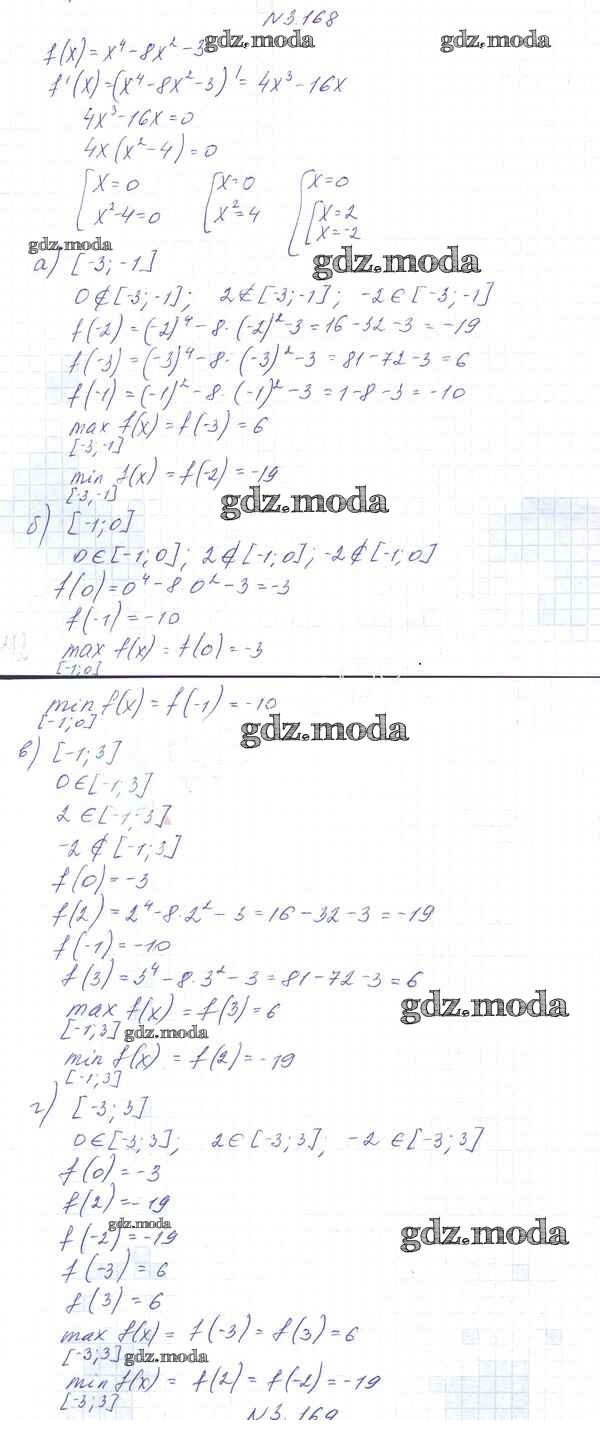 N3.168
f(x) = x⁴ - 8x² - 3
gdz.moda
gdz.moda
f'(x) = (x⁴ - 8x² - 3)' = 4x³ - 16x
4x³ - 16x = 0
4x(x² - 4) = 0
[x = 0 [x = 0 [x = 0
x² - 4 = 0 x² = 4 [x = 2
x = -2
gdz.moda
gdz.moda
а) [-3; -1]
0 ∉ [-3; -1]; 2 ∉ [-3; -1]; -2 ∈ [-3; -1]
f(-2) = (-2)⁴ - 8 · (-2)² - 3 = 16 - 32 - 3 = -19
f(-3) = (-3)⁴ - 8 · (-3)² - 3 = 81 - 72 - 3 = 6
f(-1) = (-1)² - 8 · (-1)² - 3 = 1 - 8 - 3 = -10
max f(x) = f(-3) = 6
[-3; -1]
min f(x) = f(-2) = -19
[-3; -1]
gdz.moda
б) [-1; 0]
0 ∈ [-1; 0]; 2 ∉ [-1; 0]; -2 ∉ [-1; 0]
f(0) = 0⁴ - 8 · 0² - 3 = -3
f(-1) = -10
max f(x) = f(0) = -3
[-1; 0]
min f(x) = f(-1) = -10
[-1; 0]
gdz.moda
в) [-1; 3]
0 ∈ [-1; 3]
2 ∈ [-1; 3]
-2 ∉ [-1; 3]
f(0) = -3
f(2) = 2⁴ - 8 · 2² - 3 = 16 - 32 - 3 = -19
f(-1) = -10
f(3) = 3⁴ - 8 · 3² - 3 = 81 - 72 - 3 = 6
gdz.moda
max f(x) = f(3) = 6
[-1; 3] gdz.moda
min f(x) = f(2) = -19
[-1; 3]
г) [-3; 3]
0 ∈ [-3; 3]; 2 ∈ [-3; 3]; -2 ∈ [-3; 3]
f(0) = -3
f(2) = -19
gdz.moda
gdz.moda
f(-2) = -19
f(-3) = 6
f(3) = 6
max f(x) = f(-3) = f(3) = 6
[-3; 3] gdz.moda
min f(x) = f(2) = f(-2) = -19
[-3; 3]
N3.169